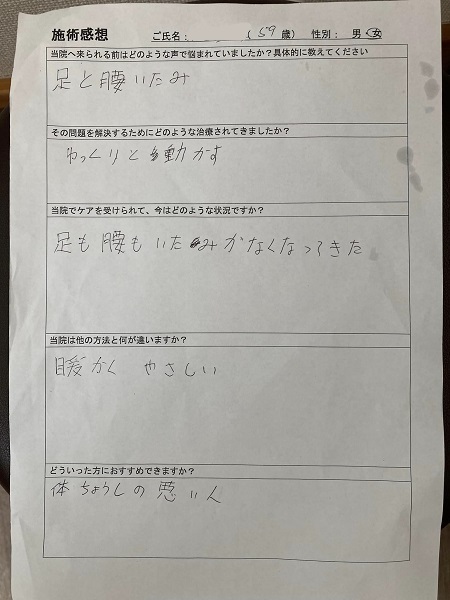 施術感想 ご氏名： (59 歳) 性別： 男 女
当院へ来られる前はどのような声で悩まれていましたか？具体的に教えてください
足と腰いたみ
その問題を解決するためにどのような治療されてきましたか？
ゆっくりと動かす
当院でケアを受けられて、今はどのような状況ですか？
足も腰もいたみがなくなってきた
当院は他の方法と何が違いますか？
暖かく やさしい
どういった方におすすめできますか？
体ちょうしの悪い人